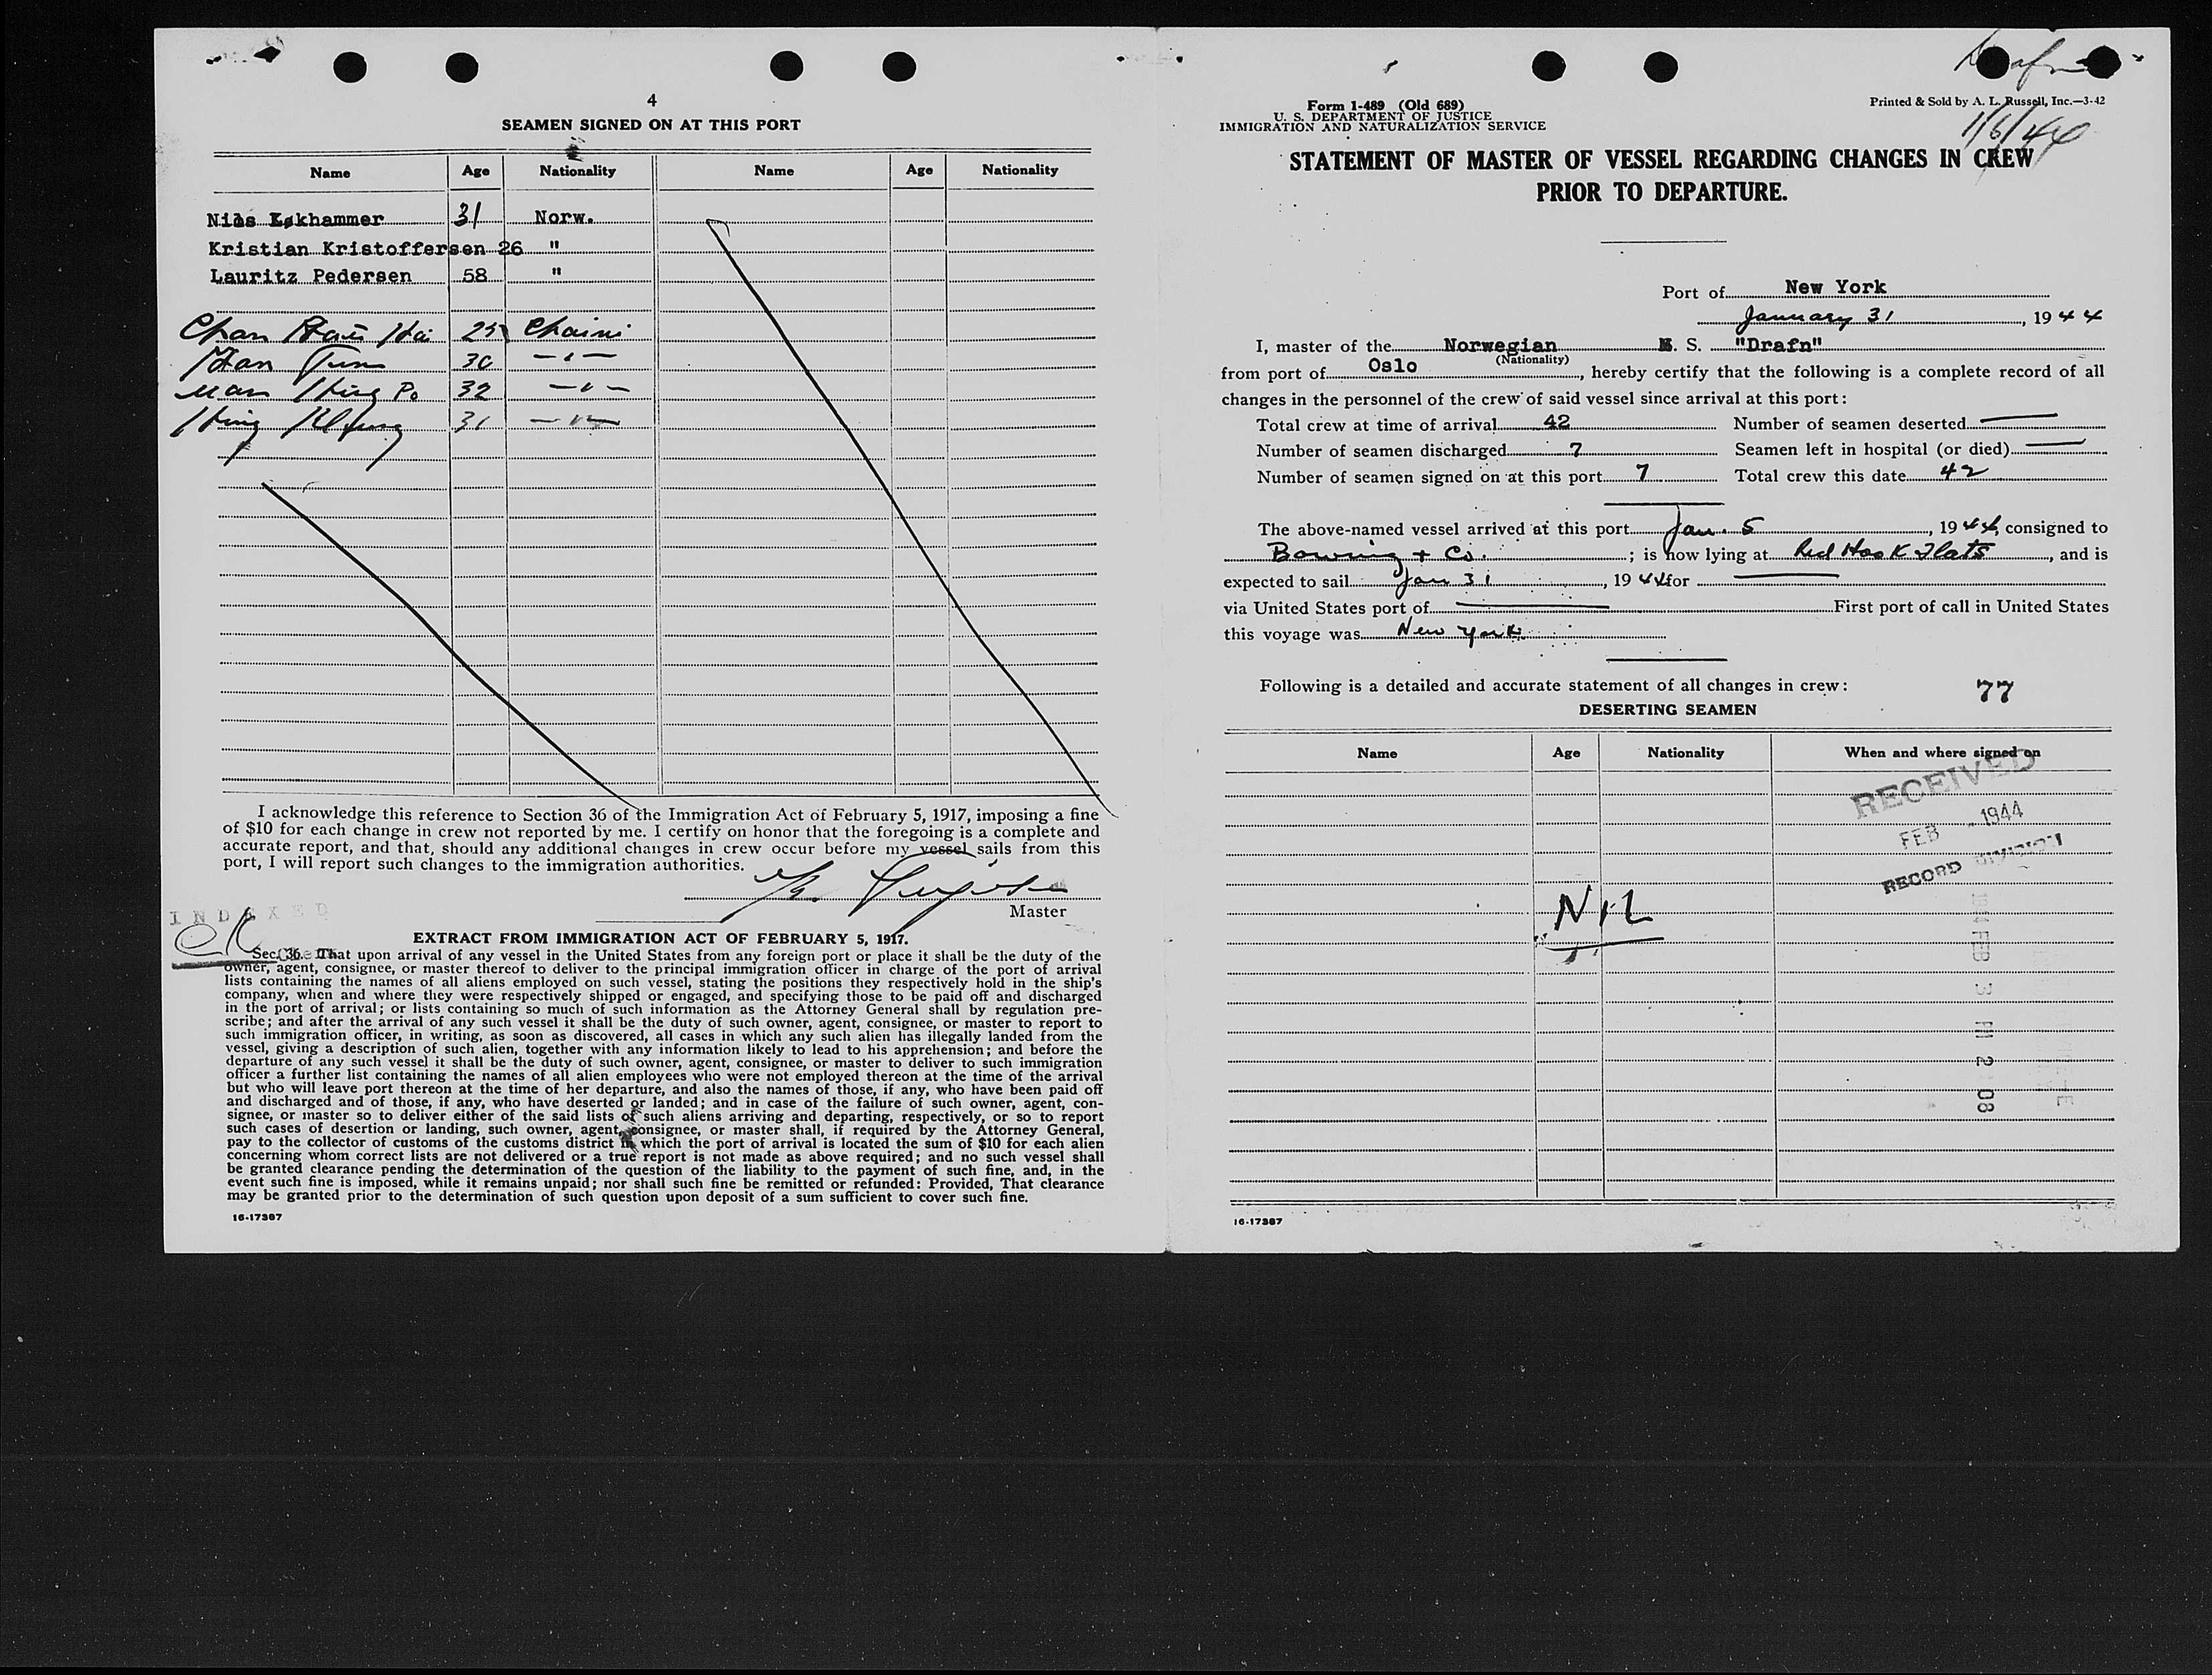 4
SEAMEN SIGNED ON AT THIS PORT
Name Age Nationality Name Age Nationality
31 Norw.
Kristian Kristoffersen 26 "
Lauritz Pedersen 58 "
Chan Hai Chaini
30 — " —
Po 32 — " —
31 — " —
I acknowledge this reference to Section 36 of the Immigration Act of February 5, 1917, imposing a fine
of $10 for each change in crew not reported by me. I certify on honor that the foregoing is a complete and
accurate report, and that, should any additional changes in crew occur before my vessel sails from this
port, I will report such changes to the immigration authorities.
Master
INDEXED
EXTRACT FROM IMMIGRATION ACT OF FEBRUARY 5, 1917.
Sec. 36. That upon arrival of any vessel in the United States from any foreign port or place it shall be the duty of the
owner, agent, consignee, or master thereof to deliver to the principal immigration officer in charge of the port of arrival
lists containing the names of all aliens employed on such vessel, stating the positions they respectively hold in the ship's
company, when and where they were respectively shipped or engaged, and specifying those to be paid off and discharged
in the port of arrival; or lists containing so much of such information as the Attorney General shall by regulation pre-
scribe; and after the arrival of any such vessel it shall be the duty of such owner, agent, consignee, or master to report to
such immigration officer, in writing, as soon as discovered, all cases in which any such alien has illegally landed from the
vessel, giving a description of such alien, together with any information likely to lead to his apprehension; and before the
departure of any such vessel it shall be the duty of such owner, agent, consignee, or master to deliver to such immigration
officer a further list containing the names of all alien employees who were not employed thereon at the time of the arrival
but who will leave port thereon at the time of her departure, and also the names of those, if any, who have been paid off
and discharged and of those, if any, who have deserted or landed; and in case of the failure of such owner, agent, con-
signee, or master so to deliver either of the said lists of such aliens arriving and departing, respectively, or so to report
such cases of desertion or landing, such owner, agent, consignee, or master shall, if required by the Attorney General,
pay to the collector of customs of the customs district in which the port of arrival is located the sum of $10 for each alien
concerning whom correct lists are not delivered or a true report is not made as above required; and no such vessel shall
be granted clearance pending the determination of the question of the liability to the payment of such fine, and, in the
event such fine is imposed, while it remains unpaid; nor shall such fine be remitted or refunded: Provided, That clearance
may be granted prior to the determination of such question upon deposit of a sum sufficient to cover such fine.
16-17387
Form 1-489 (Old 689)
U. S. DEPARTMENT OF JUSTICE
IMMIGRATION AND NATURALIZATION SERVICE
Printed & Sold by A. L. Russell, Inc.—3-42
1/6/44
STATEMENT OF MASTER OF VESSEL REGARDING CHANGES IN CREW
PRIOR TO DEPARTURE.
Port of New York
January 31, 1944
I, master of the Norwegian M. S. "Drafn"
(Nationality)
from port of Oslo, hereby certify that the following is a complete record of all
changes in the personnel of the crew of said vessel since arrival at this port:
Total crew at time of arrival 42 Number of seamen deserted —
Number of seamen discharged 7 Seamen left in hospital (or died) —
Number of seamen signed on at this port 7 Total crew this date 42
The above-named vessel arrived at this port Jan. 5, 1944, consigned to
Bowring + Co.; is now lying at Red Hook Flats, and is
expected to sail Jan 31, 1944 for —
via United States port of — First port of call in United States
this voyage was New York
Following is a detailed and accurate statement of all changes in crew: 77
DESERTING SEAMEN
Name Age Nationality When and where signed on
RECEIVED
FEB 1944
RECORD DIVISION
NIL
1944 FEB 3 PM 2 08
16-17387